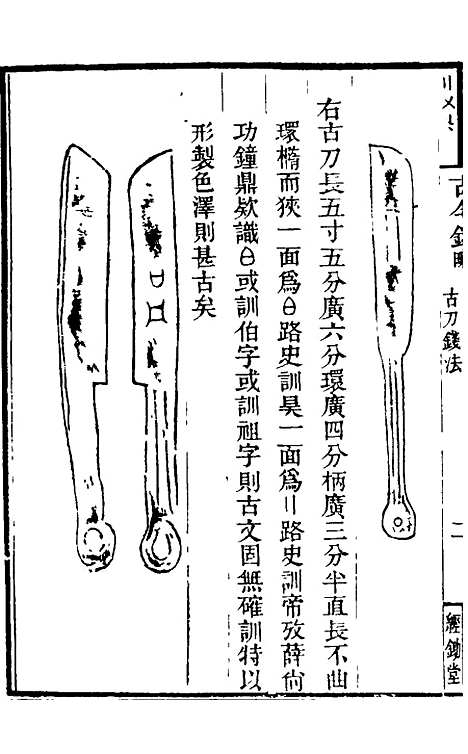 古今錢略
古刀錢法
二
經鉏堂
右古刀長五寸五分廣六分環廣四分柄廣三分半直長不曲
環橢而狹一面爲日路史訓昊一面爲〢路史訓帝攷薛尙
功鐘鼎欵識日或訓伯字或訓祖字則古文固無確訓特以
形製色澤則甚古矣